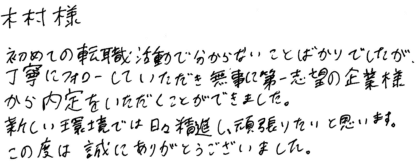 木村様
初めての転職活動で分からないことばかりでしたが、
丁寧にフォローしていただき無事に第一志望の企業様
から内定をいただくことができました。
新しい環境では日々精進し、頑張りたいと思います。
この度は誠にありがとうございました。